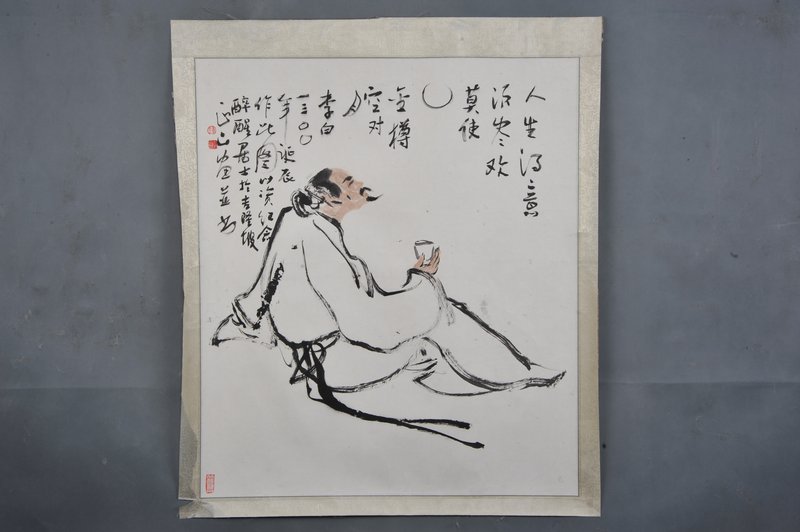 人生得意
须尽欢
莫使
金樽
空对
月
李白
一三〇〇
年诞辰
作此图以资纪念
醉醒居士於吉隆坡
並书